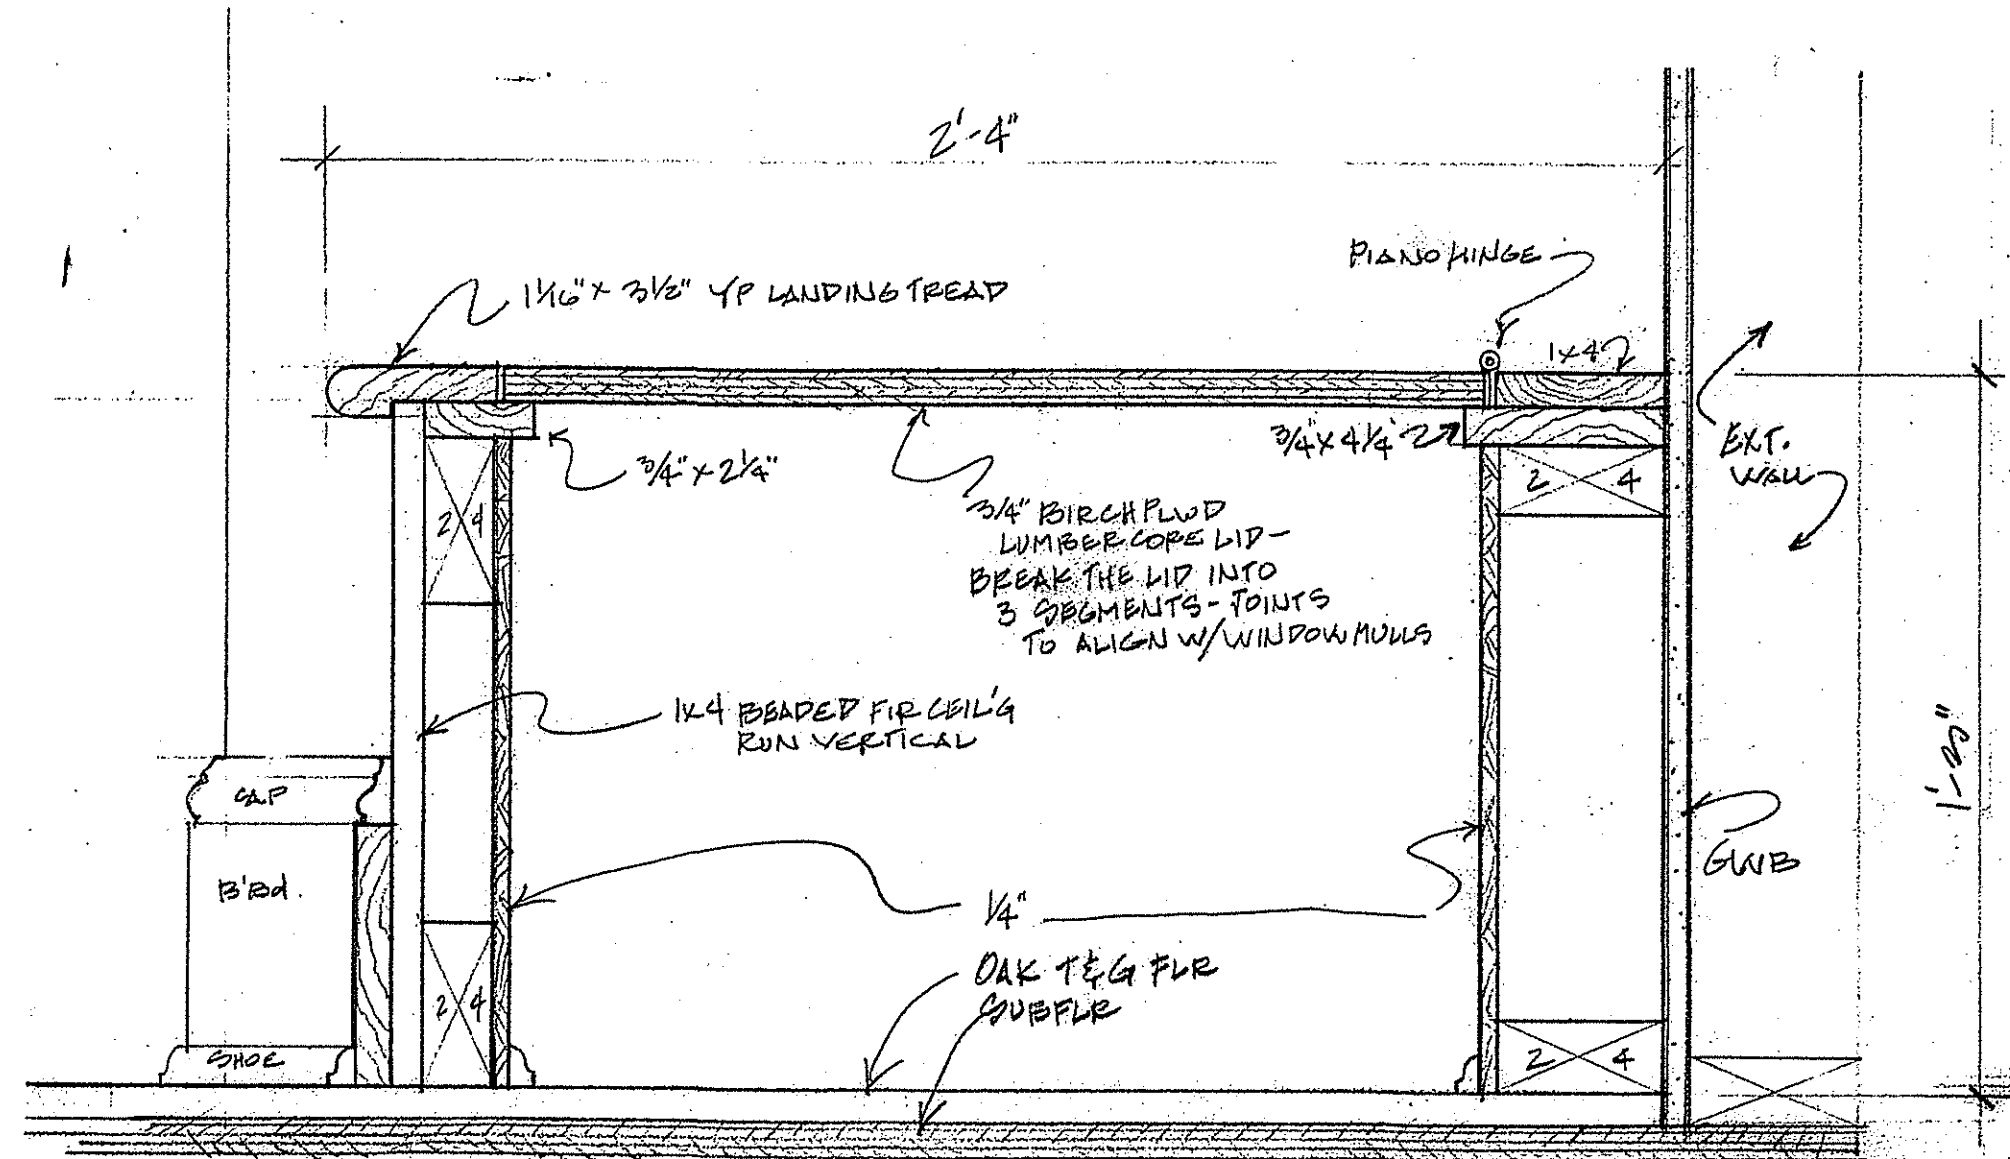 2'-4"
PIANO HINGE
1 1/16" x 3 1/2" YP LANDING TREAD
1x4
3/4" x 4 1/4"
EXT.
WALL
3/4" x 2 1/4"
2 4
2 4
3/4" BIRCH PLWD
LUMBER CORE LID-
BREAK THE LID INTO
3 SEGMENTS - JOINTS
TO ALIGN W/WINDOW MULLS
1x4 BEADED FIR CEIL'G
RUN VERTICAL
1'-3"
CAP
B'Bd.
GWB
1/4"
OAK T&G FLR
SUBFLR
2 4
2 4
SHOE